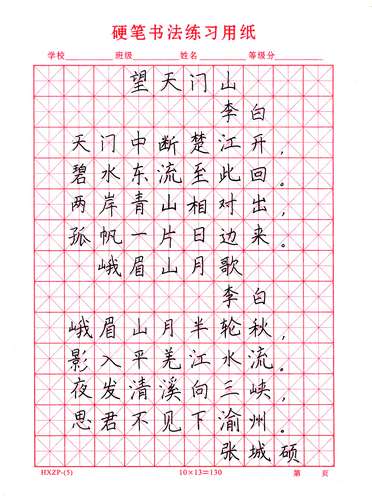 硬笔书法练习用纸
学校 班级 姓名 等级分
望天门山
李白
天门中断楚江开，
碧水东流至此回。
两岸青山相对出，
孤帆一片日边来。
峨眉山月歌
李白
峨眉山月半轮秋，
影入平羌江水流。
夜发清溪向三峡，
思君不见下渝州。
张城硕
HXZP-(5) 10×13=130 第 页